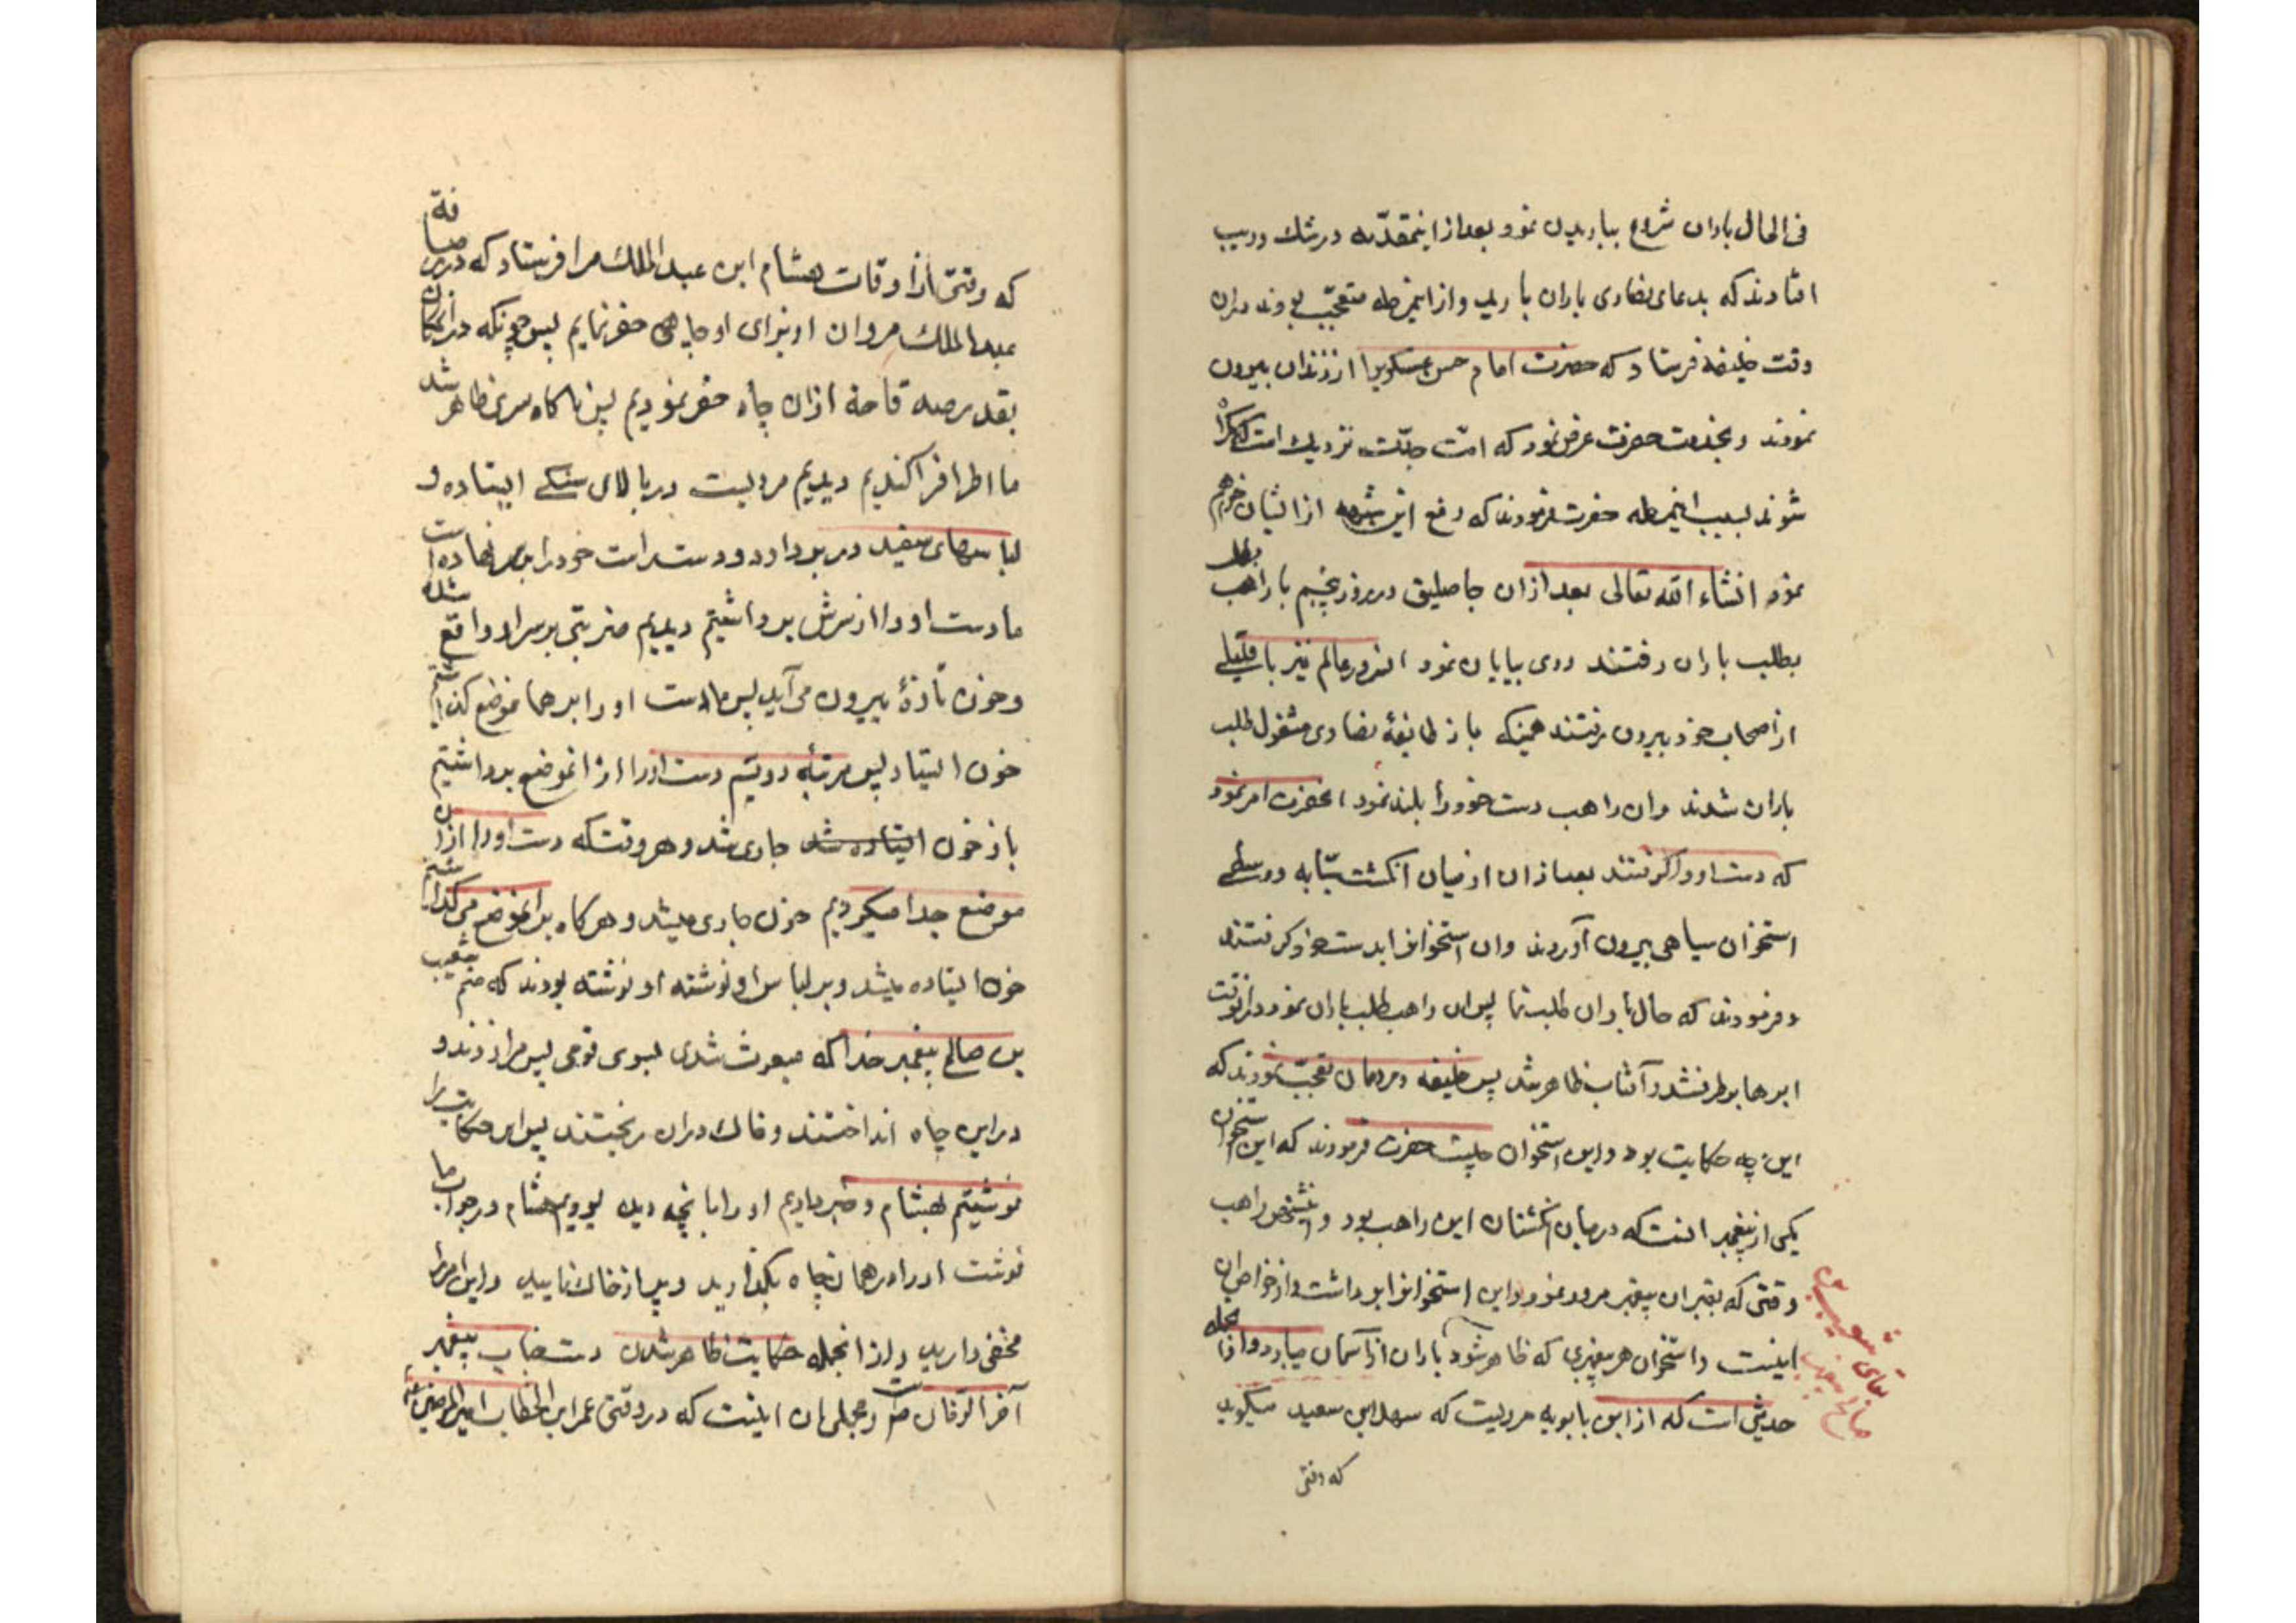 فی الحال باران شروع بباریدن نمود و بعد از اینمقدّمه در شک و ریب
افتادند که بدعای نصاری باران بارید و از اینمرحله متعجّب بودند در ان
وقت خلیفه فرستاد که حضرت امام حسن عسکریرا از زندان بیرون
نمودند و بخدمت حضرت عرض نمود که امّت جدّت نزدیک است که کمراه
شوند بسبب اینمرحله حضرت فرمودند که رفع این شبهه از ایشان خواهم
نمود انشاء الله تعالی بعد از ان جاثلیق در روز پنجم با راهب بطلب
بطلب باران رفتند و روی بیابان نمود انسرور عالم نیز با قلیلی
از اصحاب خود بیرون رفتند همینکه باز طایفهٔ نصاری مشغول طلب
باران شدند و ان راهب دست خود را بلند نمود انحضرت امر نمود
که دست او را کرفتند بعد از ان از میان انکشت سبّابه و وسطی
استخوان سیاهی بیرون آوردند و ان استخوانرا بدست خود کرفتند
و فرمودند که حال باران طلب نما پس ان راهب طلب باران نمود در انوقت
ابرها بر طرف شد و آفتاب ظاهر شد پس خلیفه و مردمان تعجّب نمودند که
این چه حکایت بود و این استخوان چیست حضرت فرمودند که این استخوان
یکی از پیغمبرانست که در میان انکشتان این راهب بود و اینشخص راهب
وقتی که بقبر ان پیغمبر مرور نمود و این استخوانرا برداشت و از خواص ان
اینست و استخوان هر پیغمبری که ظاهر شود باران از آسمان میبارد و از انجمله
حدیثی است که از ابن بابویه مرویست که سهل ابن سعید میکوید
که وقتی
که وقتی از اوقات هشام ابن عبد الملک مرا فرستاد که در رصافة
عبد الملک مروان از برای او چاهی حفر نمایم پس چونکه در انمکان
بقدر صد قامة از ان چاه حفر نمودیم پس ناکاه سری ظاهر شد
ما اطرافرا کندیم دیدیم مردیست در بالای سنکی ایستاده و
لباسهای سفید در بر دارد و دست راست خود را بر سر نهاده است
ما دست او را از سرش برداشتیم دیدیم ضربتی بر سر او واقع شده
و خون تازهٔ بیرون می آید پس ما دست او را بر همانموضع کذاشتیم
خون ایستاد پس مرتبهٔ دویّم دست او را از انموضع برداشتیم
باز خون جاری شد و هر وقت که دست او را از ان
موضع جدا میکردیم خون جاری میشد و هر کاه بر انموضع می کذاشتیم
خون ایستاده میشد و بر لباس او نوشته بودند که منم شعیب
بن صالح پیغمبر خدا که مبعوث شدم بسوی قومی پس مرا زدند و
در این چاه انداختند و خاک در ان ریختند پس این حکایت را
نوشتیم بهشام و خبر دادیم او را بانچه دیده بودیم هشام در جواب ما
نوشت او را در همان چاه بکذارید و پر از خاک نمایید و این امر را
مخفی دارید و از انجمله حکایت ظاهر شدن دست جناب پیغمبر
آخر الزمان و مجملی از ان اینست که در وقتی عمر ابن الخطاب